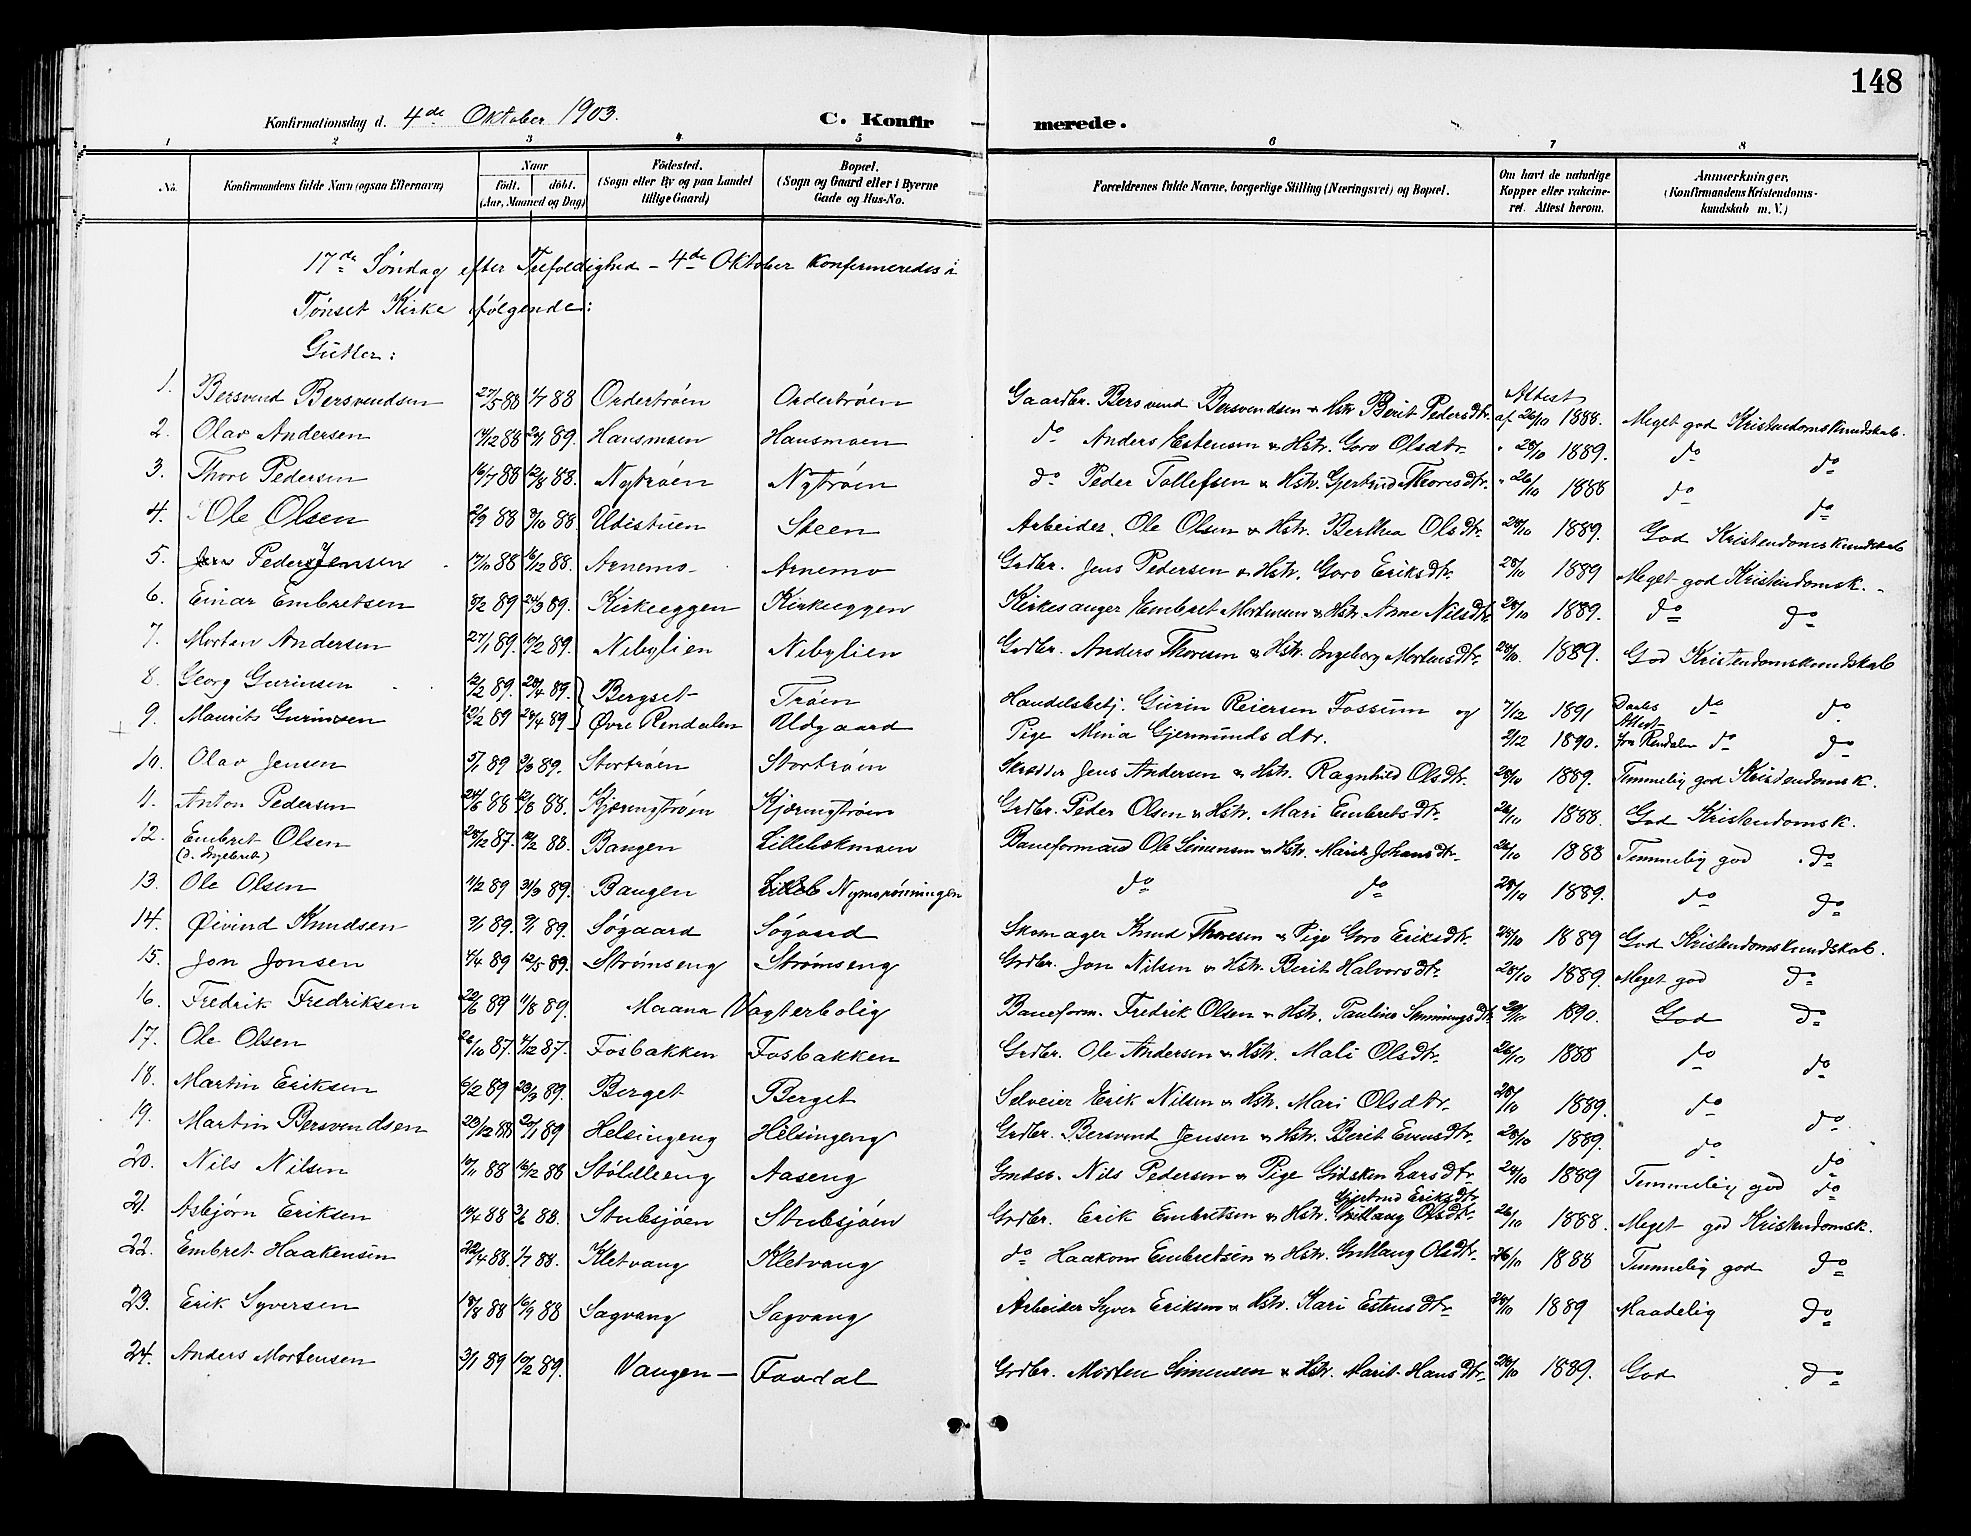 148
Konfirmationsdag d. 4de Oktober 1903. C. Konfirmerede.
1 2 3 4 5 6 7 8
No. Konfirmandens fulde Navn (ogsaa Efternavn) Naar födt. döbt. (Aar, Maaned og Dag) Födested. (Sogn eller By og paa Landet tillige Gaard) Bopæl. (Sogn og Gaard eller i Byerne Gade og Hus-No. Forældrenes fulde Navne, borgerlige Stilling (Næringsvei) og Bopæl. Om havt de naturlige Kopper eller vakcineret. Attest herom. Anmærkninger, (Konfirmandens Kristendomskundskab m. V.)
17de Søndag efter Trefoldighed - 4de Oktober konfirmeredes i
Tönset Kirke følgende:
Gutter:
1. Bersvend Bersvendsen 27/5 88 1/7 88 Ordertrøen Ordertrøen Gaardbr. Bersvend Bersvendsen & Hstr. Berit Pedersdtr. Attest af 26/10 1888. Meget god Kristendomskundskab.
2. Olav Andersen 14/12 88 89. Hansmoen Hansmoen do Anders Estensen & Hstr. Goro Olsdtr. " 28/10 1889. do do
3. Thore Pedersen 16/7 88 12/8 88. Nytrøen Nytrøen do Peder Tollefsen & Hstr. Gjertrud Thoresdtr. " 26/10 1888 do do
4. Ole Olsen 2/9 88 /10 88. Utistuen Steen Arbeider. Ole Olsen & Hstr. Berthea Olsdtr. 28/10 1889. God Kristendomskundskab
5. Peder Jensen 17/10 88 16/12 88. Arnemo Arnemo Grdbr. Jens Pedersen & Hstr. Goro Eriksdtr. 28/10 1889 Meget god Kristendomsk.
6. Einar Embretsen /2 89 24/3 89. Kirkeeggen Kirkeeggen Kirkesanger Embret Mortensen & Hstr. Anne Nilsdtr. 28/10 1889. do do
7. Morten Andersen 27/1 89. 17/2 89. Nibylien Nibylien Grdbr. Anders Thoresen & Hstr. Ingeborg Mortensdtr. 28/10. 1889. God Kristendomskundskab
8. Georg Gurinsen 12/2 89. 28/4 89. Bergset Trøen Handelsbetj. Gurin Reiersen Fossum og 7/12 1891 Daabs do do
9. Maurits Gurinsen 12/2 89 28/4 89 Øvre Rendalen Udgaard Pige Mina Gjermundsdtr. 2/12 1890. Attest fra Rendalen do do
10. Olav Jensen 5/1 89 3/3 89. Stortrøen Stortrøen Skrædder Jens Andersen & Hstr. Ragnhild Olsdtr. 28/10 1889. Temmelig god Kristendomsk.
11. Anton Pedersen 24/6 88 12/8 88. Kjæringtrøen Kjæringtrøen Grdbr. Peder Olsen & Hstr. Mari Embretsdtr. 26/10 1888. God Kristendomsk.
12. Embret Olsen 28/12 87. 12/2 88. Bangen Lilleleskmoen Baneformand Ole Simensen & Hstr. Marit Johansdtr. 26/10 1888 Temmelig god do
(d. Ingebret)
13. Ole Olsen 11/2 89 31/3 89. Bangen Nymoenningen do do 28/10 1889. do do
14. Øivind Knudsen 7/1 89. 7/1 89. Søgaard Søgaard Skomager Knud Thoresen & Pige Goro Eriksdtr. 28/10 1889 God Kristendomskundskab.
15. Jon Jonsen 4/4 89 12/5 89. Strømseng Strømseng Grdbr. Jon Nilsen & Hstr. Berit Halvorsdtr. 28/10 1889. Meget god do
16. Fredrik Fredriksen 22/6 89 11/8 89. Maana Vogterbolig Baneform. Fredrik Olsen & Hstr. Pauline Semmingsdtr. 29/10 1890. God do
17. Ole Olsen 26/10 87. 4/12 87. Fosbakken Fosbakken Grdbr. Ole Andersen & Hstr. Mali Olsdtr. 26/10 1888 do do
18. Martin Eriksen 6/2 89 23/3 89. Berget Berget Selveier Erik Nilsen & Hstr. Mari Olsdtr. 28/10 1889. do do
19. Martin Bersvendsen 23/12 88 20/1 89 Helsingeng Helsingeng Grdbr. Bersvend Jensen & Hstr. Berit Evensdtr. 28/10 1889. do do
20. Nils Nilsen 10/11 88 16/12 88 Støleleeng Aaseng Gmdsb. Nils Pedersen & Pige Gidsken Larsdtr. 28/10 1889 Temmelig god do
21. Asbjørn Eriksen 14/4 88 3/6 88. Stubsjøen Stubsjøen Grdbr. Erik Embretsen & Hstr. Gjertrud Eriksdtr. 26/10 1888. Meget god Kristendomsk.
22. Embret Haakensen 22/4 88. 1/7 88. Kletvang Kletvang do Haakon Embretsen & Hstr. Gullaug Olsdtr. 26/10 1888 Temmelig god do
23. Erik Syversen 18/8 88 16/9 88 Sagvang Sagvang Arbeider Syver Eriksen & Hstr. Kari Estensdtr. 28/10 1889 Maadelig do
24. Anders Mortensen 3/1 89 10/2 89. Vangen - Faadal Grdbr. Morten Simensen & Hstr. Marit Hansdtr. 28/10 1889. God do